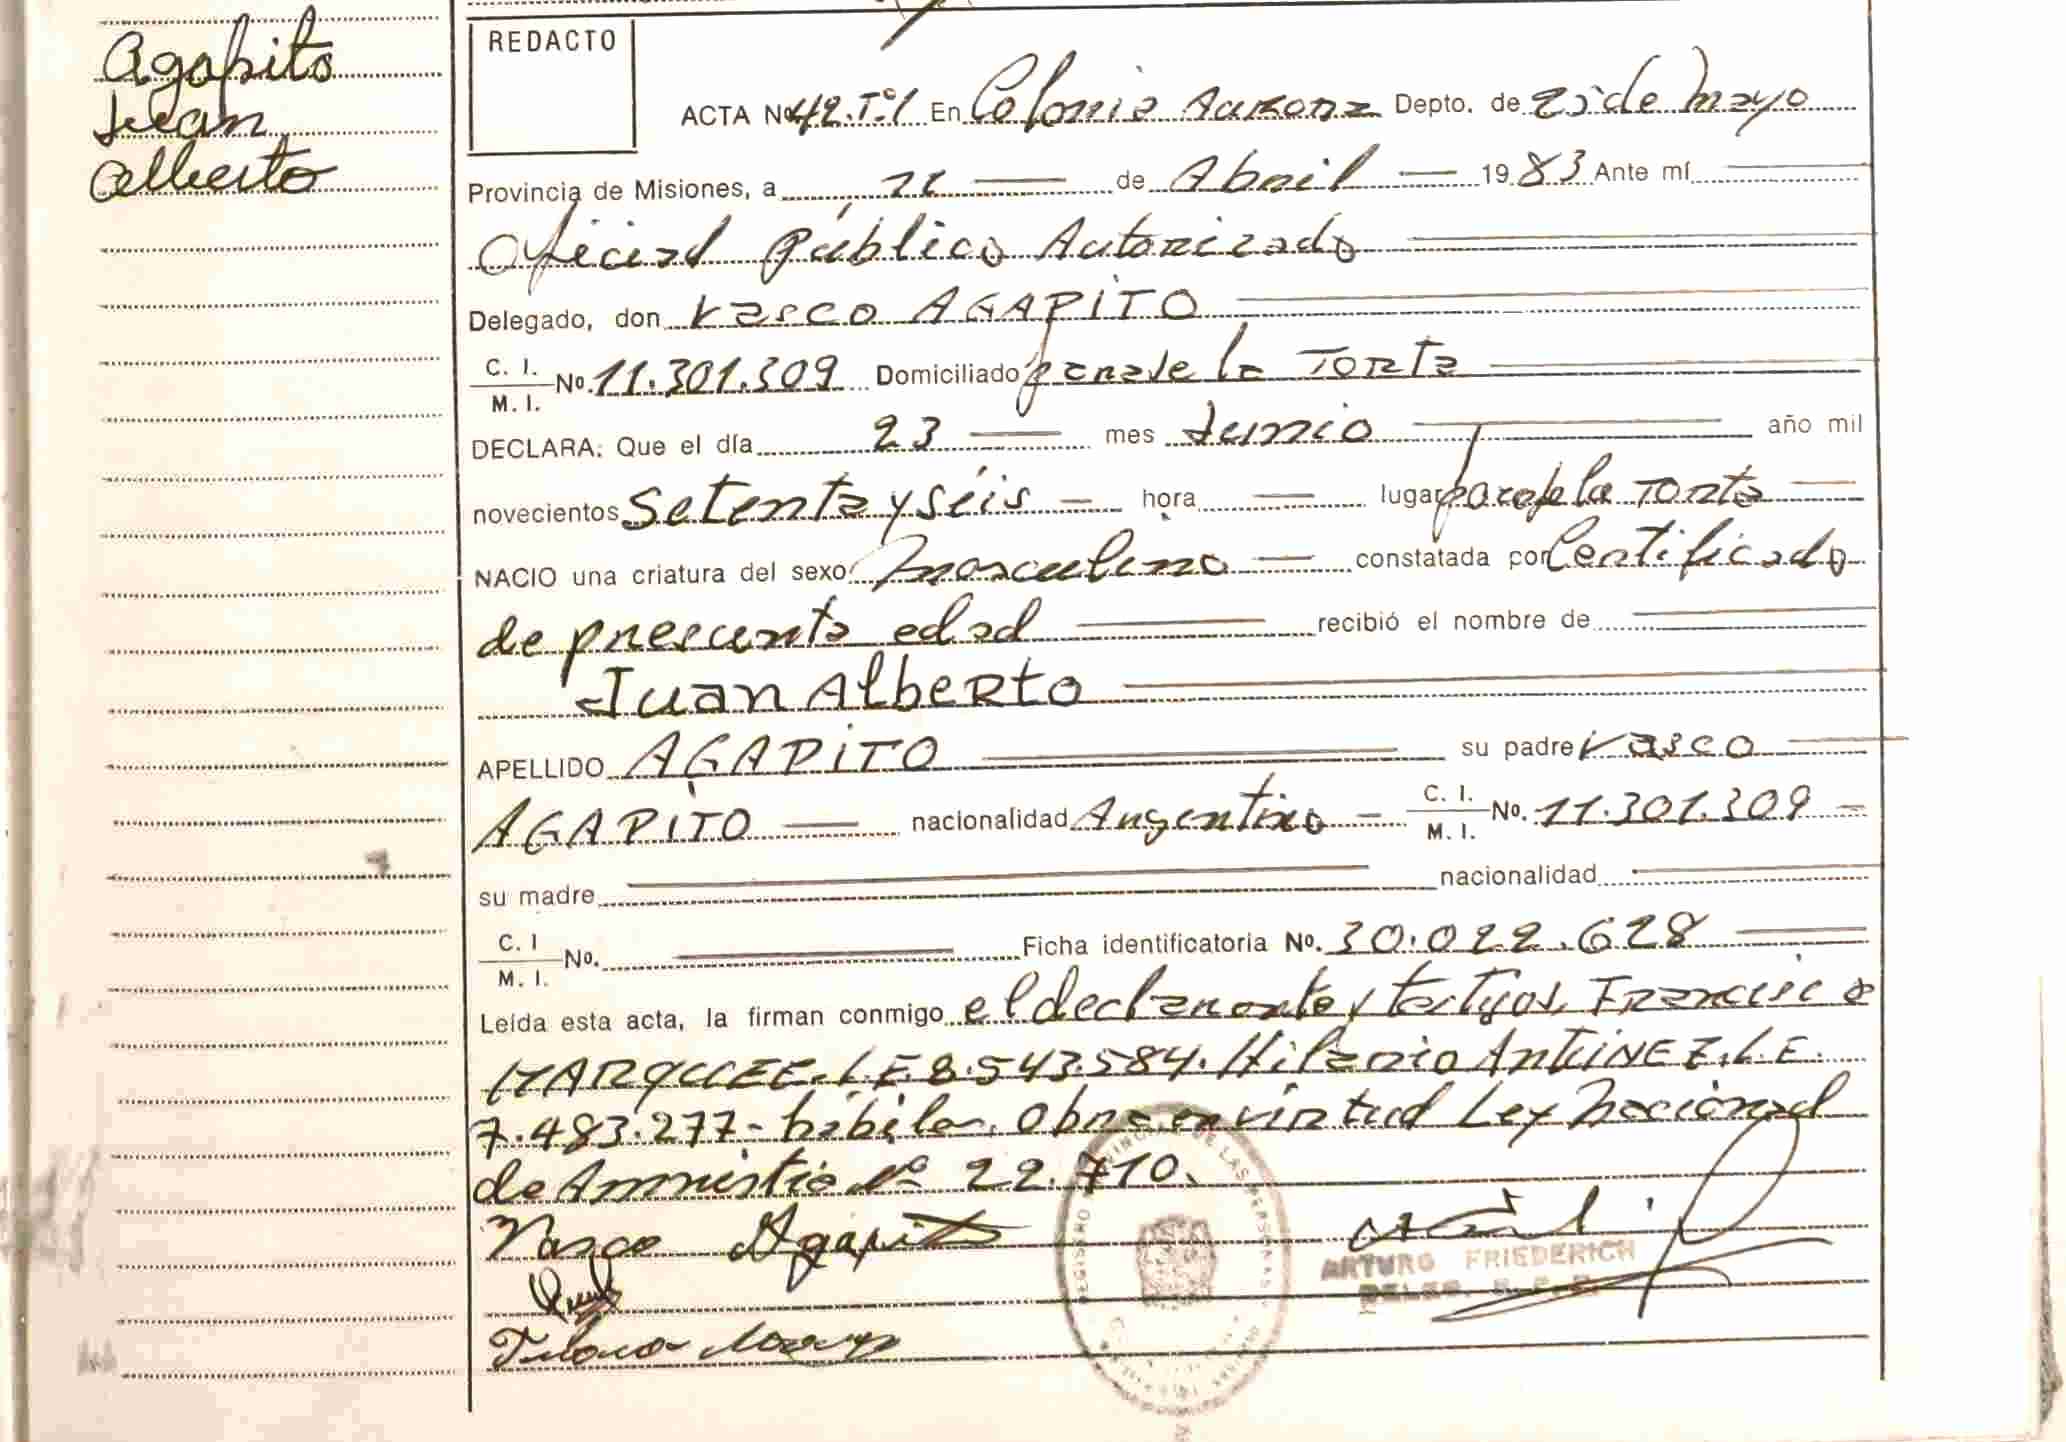 Agapito
Juan
Alberto
REDACTO
ACTA No 42.Tº1 En Colonia Aurora Depto. de 25 de Mayo
Provincia de Misiones, a de Abril 1983 Ante mí
Oficial Público Autorizado
Delegado, don Vasco AGAPITO
C. I. M. I. No. 11.301.309 Domiciliado paraje la Torta
DECLARA: Que el día 23 mes Junio año mil
novecientos setenta y séis hora lugar paraje la Torta
NACIO una criatura del sexo Masculino constatada por Certificado
de presunta edad recibió el nombre de
Juan Alberto
APELLIDO AGAPITO su padre Vasco
AGAPITO nacionalidad Argentino C. I. M. I. No. 11.301.309
su madre nacionalidad
C. I M. I. No. Ficha identificatoria No. 30.022.628
Leída esta acta, la firman conmigo el declarante y testigos, Francisco
MARQUEZ. L.E. 8.543.584. Hilario ANTUNEZ. L.E.
7.483.277- hábiles. Obra en virtud Ley Nacional
de Amnistia Nº 22.710.
Vasco Agapito
ARTURO FRIEDERICH
DELEG. R. P. P.
REGISTRO PROVINCIAL DE LAS PERSONAS